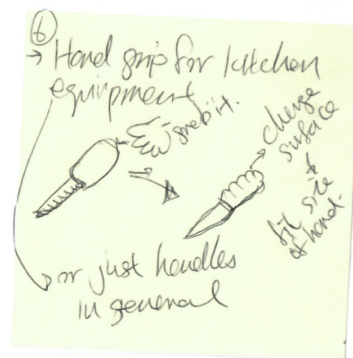 6
→ Hand grip for kitchen
equipment
grab it.
change
surface
+
fit size
of hand.
or just handles
in general